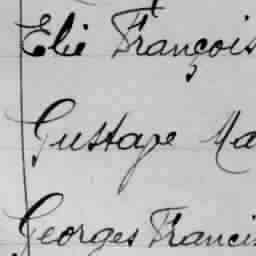 Elie François
Gustave Ma
Georges Franci